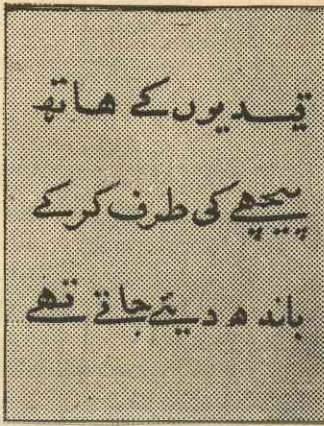 قیدیوں کے ہاتھ
پیچھے کی طرف کرکے
باندھ دیئے جاتے تھے